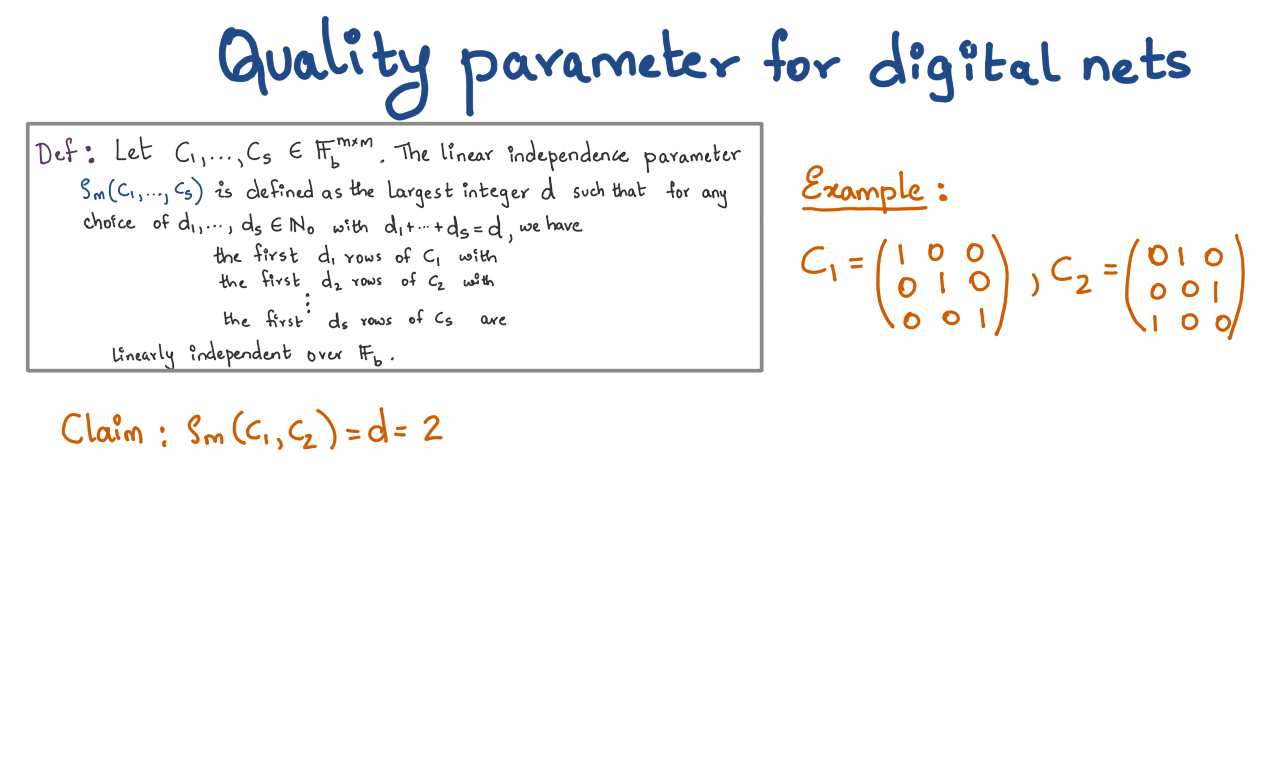 Quality parameter for digital nets
Def: Let C₁,...,Cₛ ∈ 𝔽_b^{m×m}. The linear independence parameter
ρₘ(C₁,...,Cₛ) is defined as the largest integer d such that for any
choice of d₁,...,dₛ ∈ ℕ₀ with d₁+...+dₛ=d, we have
the first d₁ rows of C₁ with
the first d₂ rows of C₂ with
⋮
the first dₛ rows of Cₛ are
linearly independent over 𝔽_b.
Example:
C₁ = (1 0 0
0 1 0
0 0 1), C₂ = (0 1 0
0 0 1
1 0 0)
Claim: ρₘ(C₁,C₂)=d=2